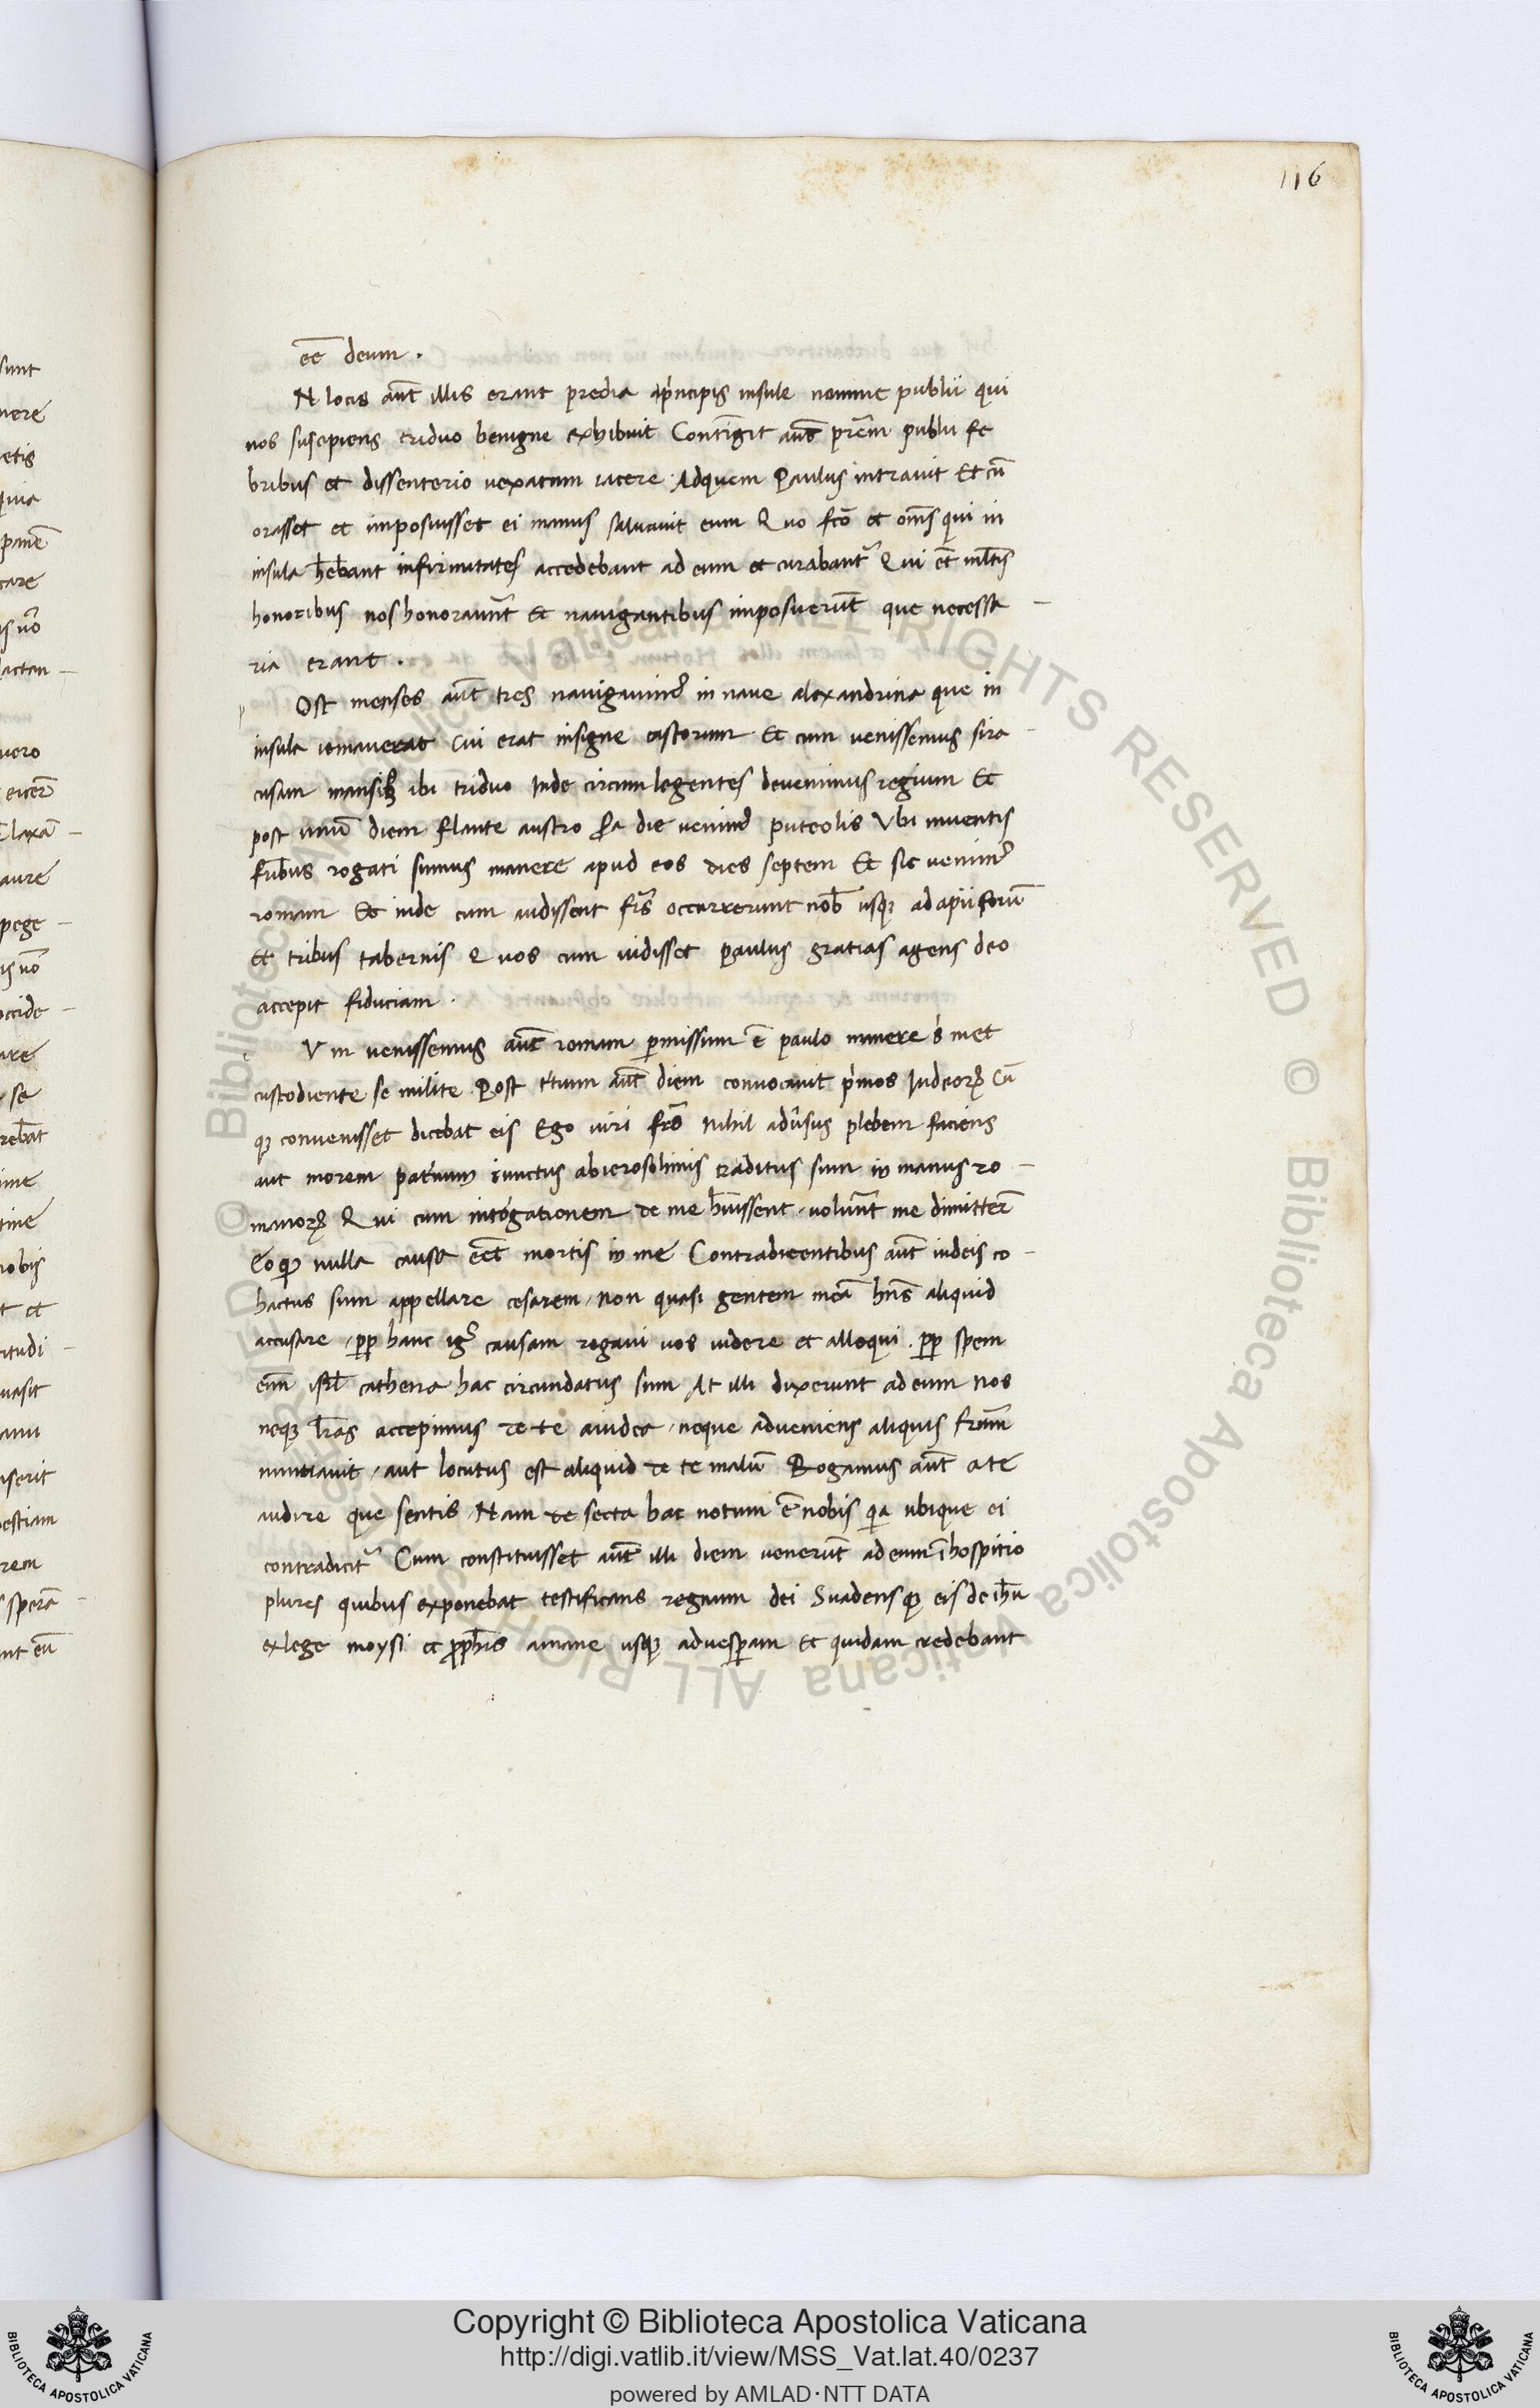 116
sunt
etis
quia
panē
care
is uō
lactan -
uoro
aure
pege -
is uō
occide -
are
se
rebāt
time
nobis
t et
titudi -
uasit
nserit
estiam
rem
sperā -
nt eū
eē̄ deum .
N locis aūt illis erant predia pͥncipis insule nomine publii qui
nos suscipiens triduo benigne exhibuit Contīgit aūt pr̄em publii fe
bribus et dissenterio uexatum iacere Adquem Paulus intrauit Et cū
orasset et imposuisset ei manus saluauit eum Quo fc̄o et om̄s qui in
insula h̄ebant infirmitates accedebant ad eum et curabantᷣ Qui et̄ ml̄tis
honoribus nos honorauer̄t Et nauigantibus imposuerūt que necessa -
ria erant .
p Ost menses aūt tres nauigauimꝰ in naue alexandrina que in
insula iemauerat Cui erat insigne castorum Et cum uenissemus sira -
cusam mansimꝰ ibi triduo Inde circum legentes deuenimus regium Et
post unū diem flante austro ſ̄a die uenimꝰ puteolis Vbi inuentis
fr̄ibus rogati sumus manere apud eos dies septem Et sic uenimꝰ
romam Et inde cum audissent fr̄s occurrerunt nob̄ usqꝫ ad apii forū
Et tribus tabernis Quos cum uidisset Paulus gratias agens deo
accepit fiduciam .
c Vm uenissemus aūt romam ꝑmissum ē paulo manere s̍ met
custodiente se milite . Post tͥtium aūt diem conuocauit pͥmos Iudeoꝝ Cū
qꝫ conuenisset dicebat eis Ego uiri fr̄s Nihil adūsus plebem faciens
aut morem pat̍num uinctus abierosolimis traditus sum in manus ro -
manoꝝ Qui cum int̍ogationem de me h̄uissent . uoluer̄t me dimitter̄
Eo qꝫ nulla causa eēt mortis in me Contradicentibus aūt iudeis co -
hactus sum appellare cesarem . non quasi gentem meā hn̄s aliquid
accusare . ꝓp hanc igᷣ causam rogaui uos uidere et alloqui . ꝓp spem
eīm isrl̄ cathena hac circundatus sum At illi dixerunt ad eum Nos
neqꝫ lr̄as accepimus de te aiudea . neque adueniens aliquis fr̄um
nuntiauit . aut locutus est aliquid de te malū Rogamus aūt ate
audire que sentis . Nam de secta hac notum ē nobis qͥa ubique ei
contradicitᷣ Cum constituisset aūt illi diem uenerūt ad eum ī hospitio
plures quibus exponebat testificans regnum dei Suadens qꝫ eis de ih̄u
ex lege moysi et ꝓph̄is amane usqꝫ aduesꝑam Et quidam credebant
Copyright © Biblioteca Apostolica Vaticana
http://digi.vatlib.it/view/MSS_Vat.lat.40/0237
powered by AMLAD·NTT DATA
BIBLIOTECA APOSTOLICA VATICANA
BIBLIOTECA APOSTOLICA VATICANA
© Biblioteca Apostolica Vaticana ALL RIGHTS RESERVED © Biblioteca Apostolica Vaticana ALL RIGHTS RESERVED